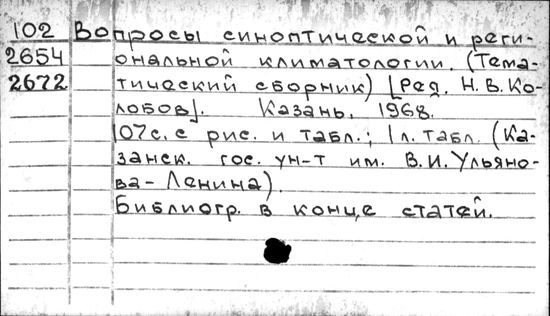 102 Вопросы синоптической и реги-
2654 ональной климатологии. (Тема-
2672 тический сборник) [Ред. Н.В.Ко-
лобов]. Казань, 1968.
107с. с рис. и табл.; 1л. табл. (Ка-
занск. гос. ун-т им. В.И.Ульяно-
ва-Ленина).
Библиогр. в конце статей.